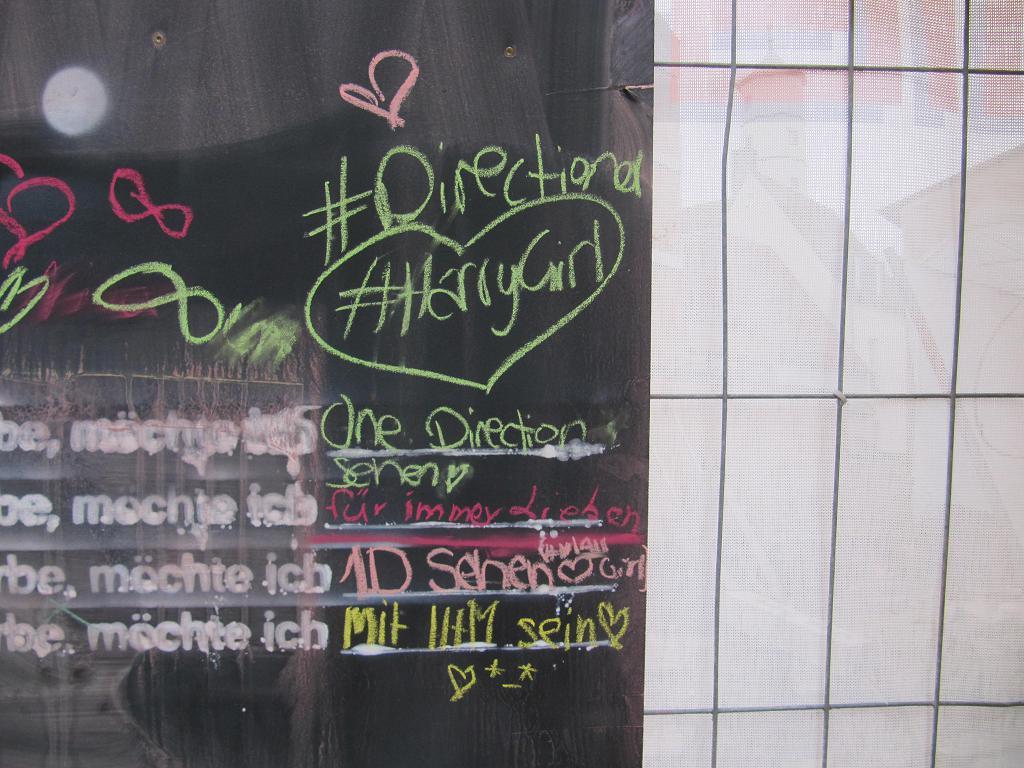 #Directioner
#HarryGirl
be, möchte ich One Direction
sehen
be, möchte ich für immer Lieben
rbe, möchte ich 1D Sehen Girl
rbe, möchte ich Mit sein
*_*